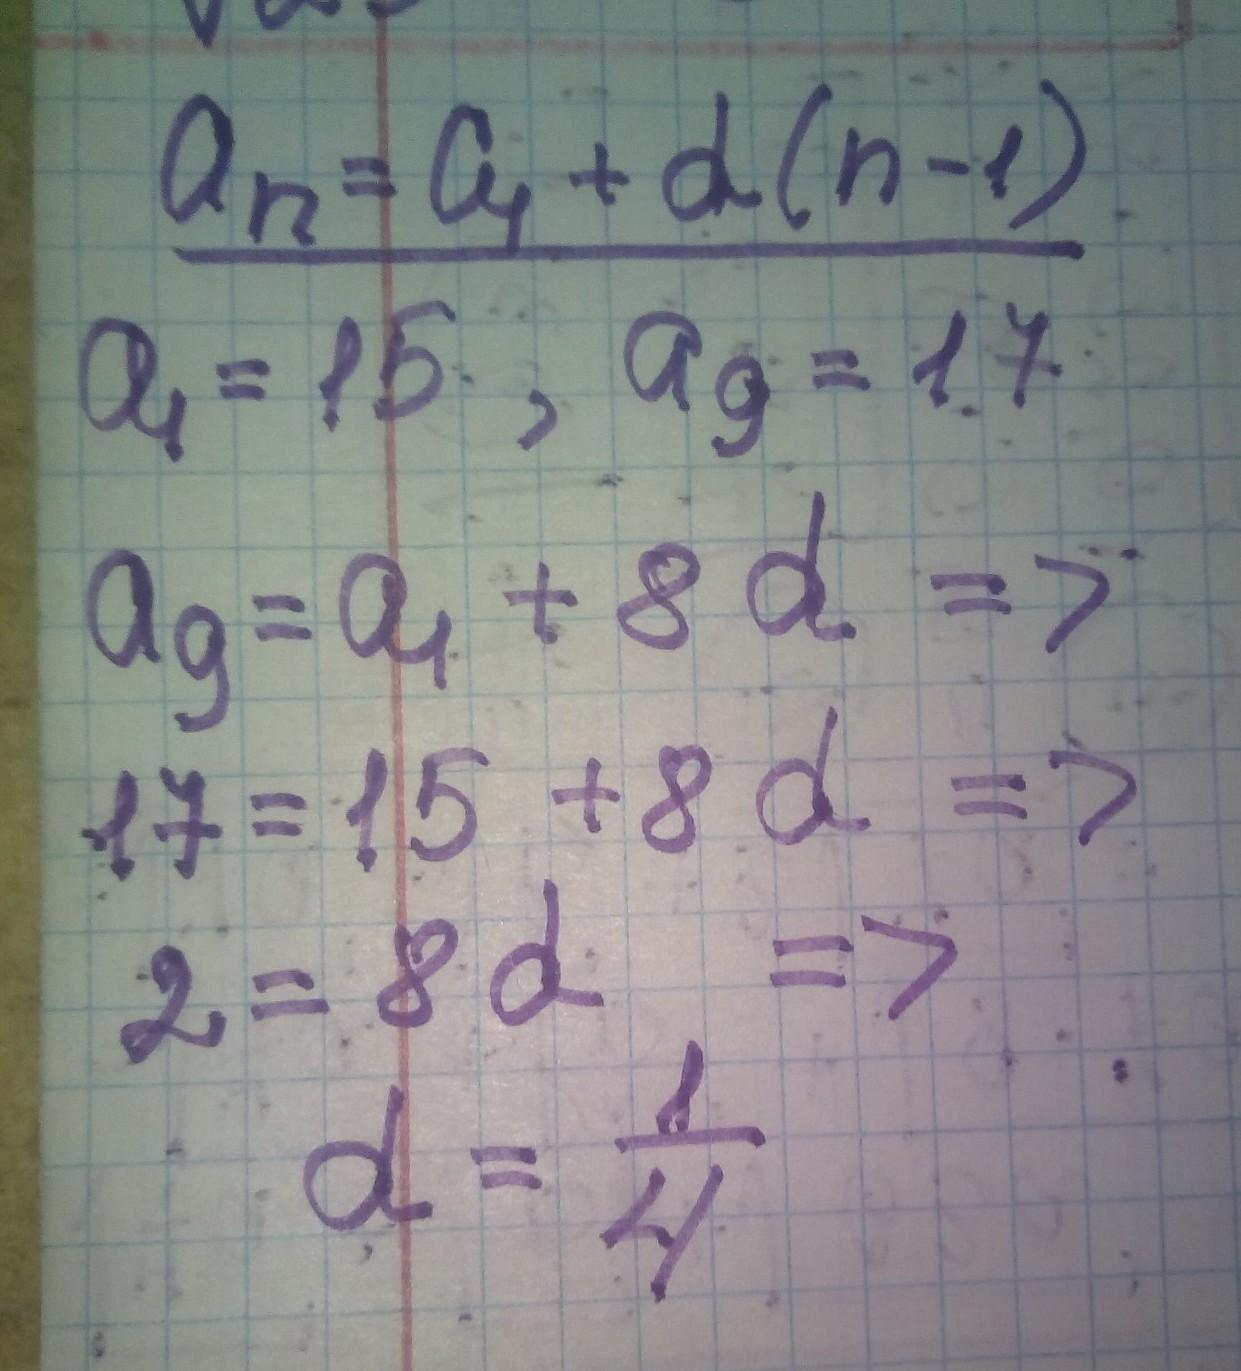 aₙ = a₁ + d(n-1)
a₁ = 15, a₉ = 17
a₉ = a₁ + 8d =>
17 = 15 + 8d =>
2 = 8d =>
d = 1/4